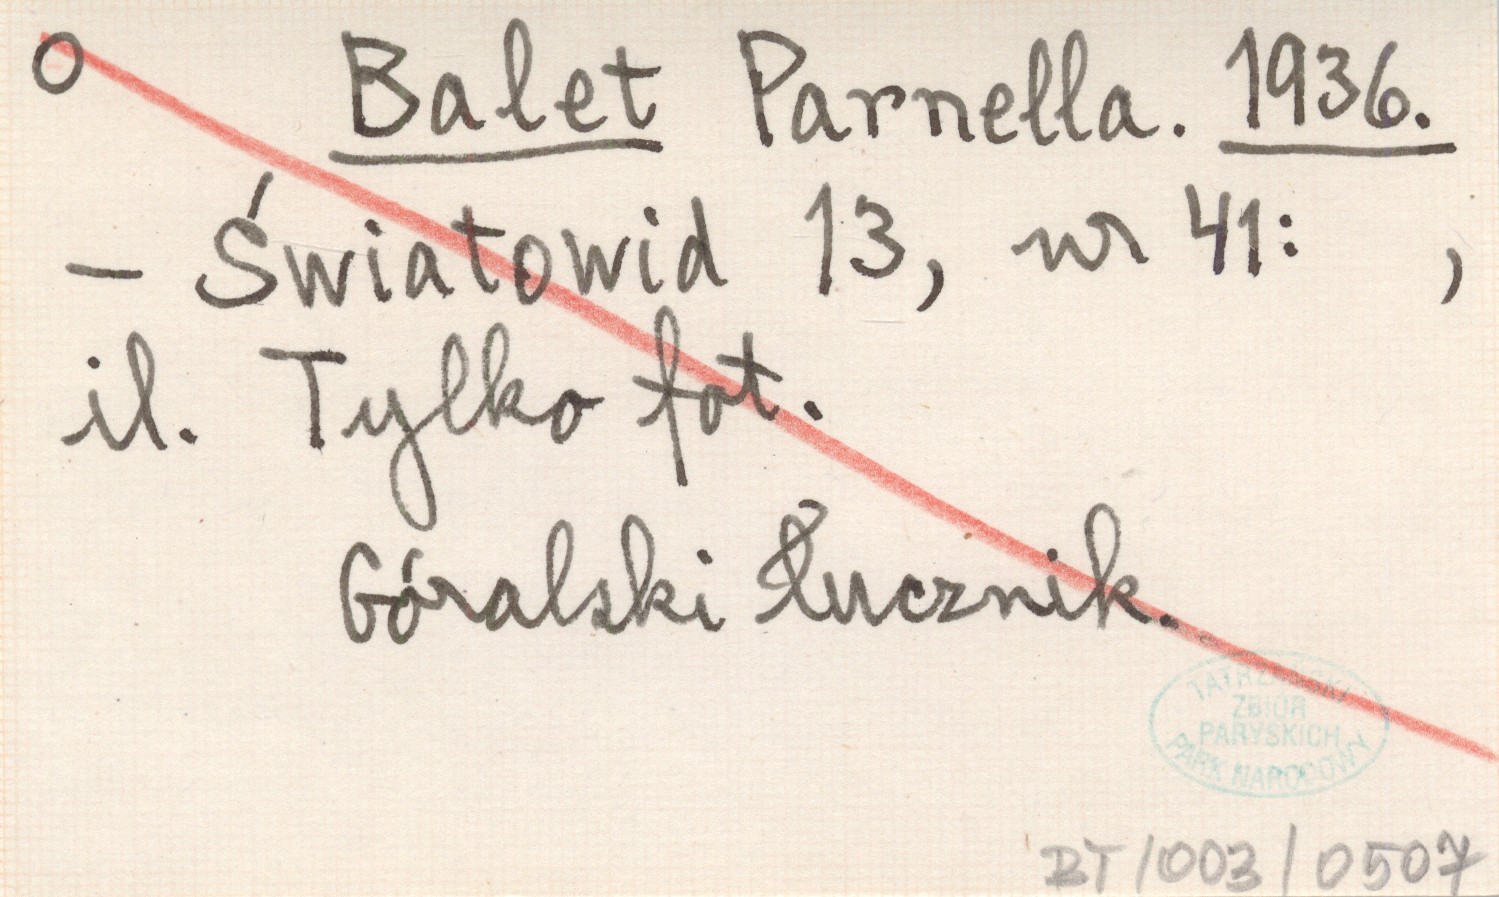 O Balet Parnella. 1936.
– Światowid 13, nr 41: ,
il. Tylko fot.
Góralski Łucznik.
TATRZAŃSKI
ZBIÓR
PARYSKICH
PARK NARODOWY
BT/003/0507